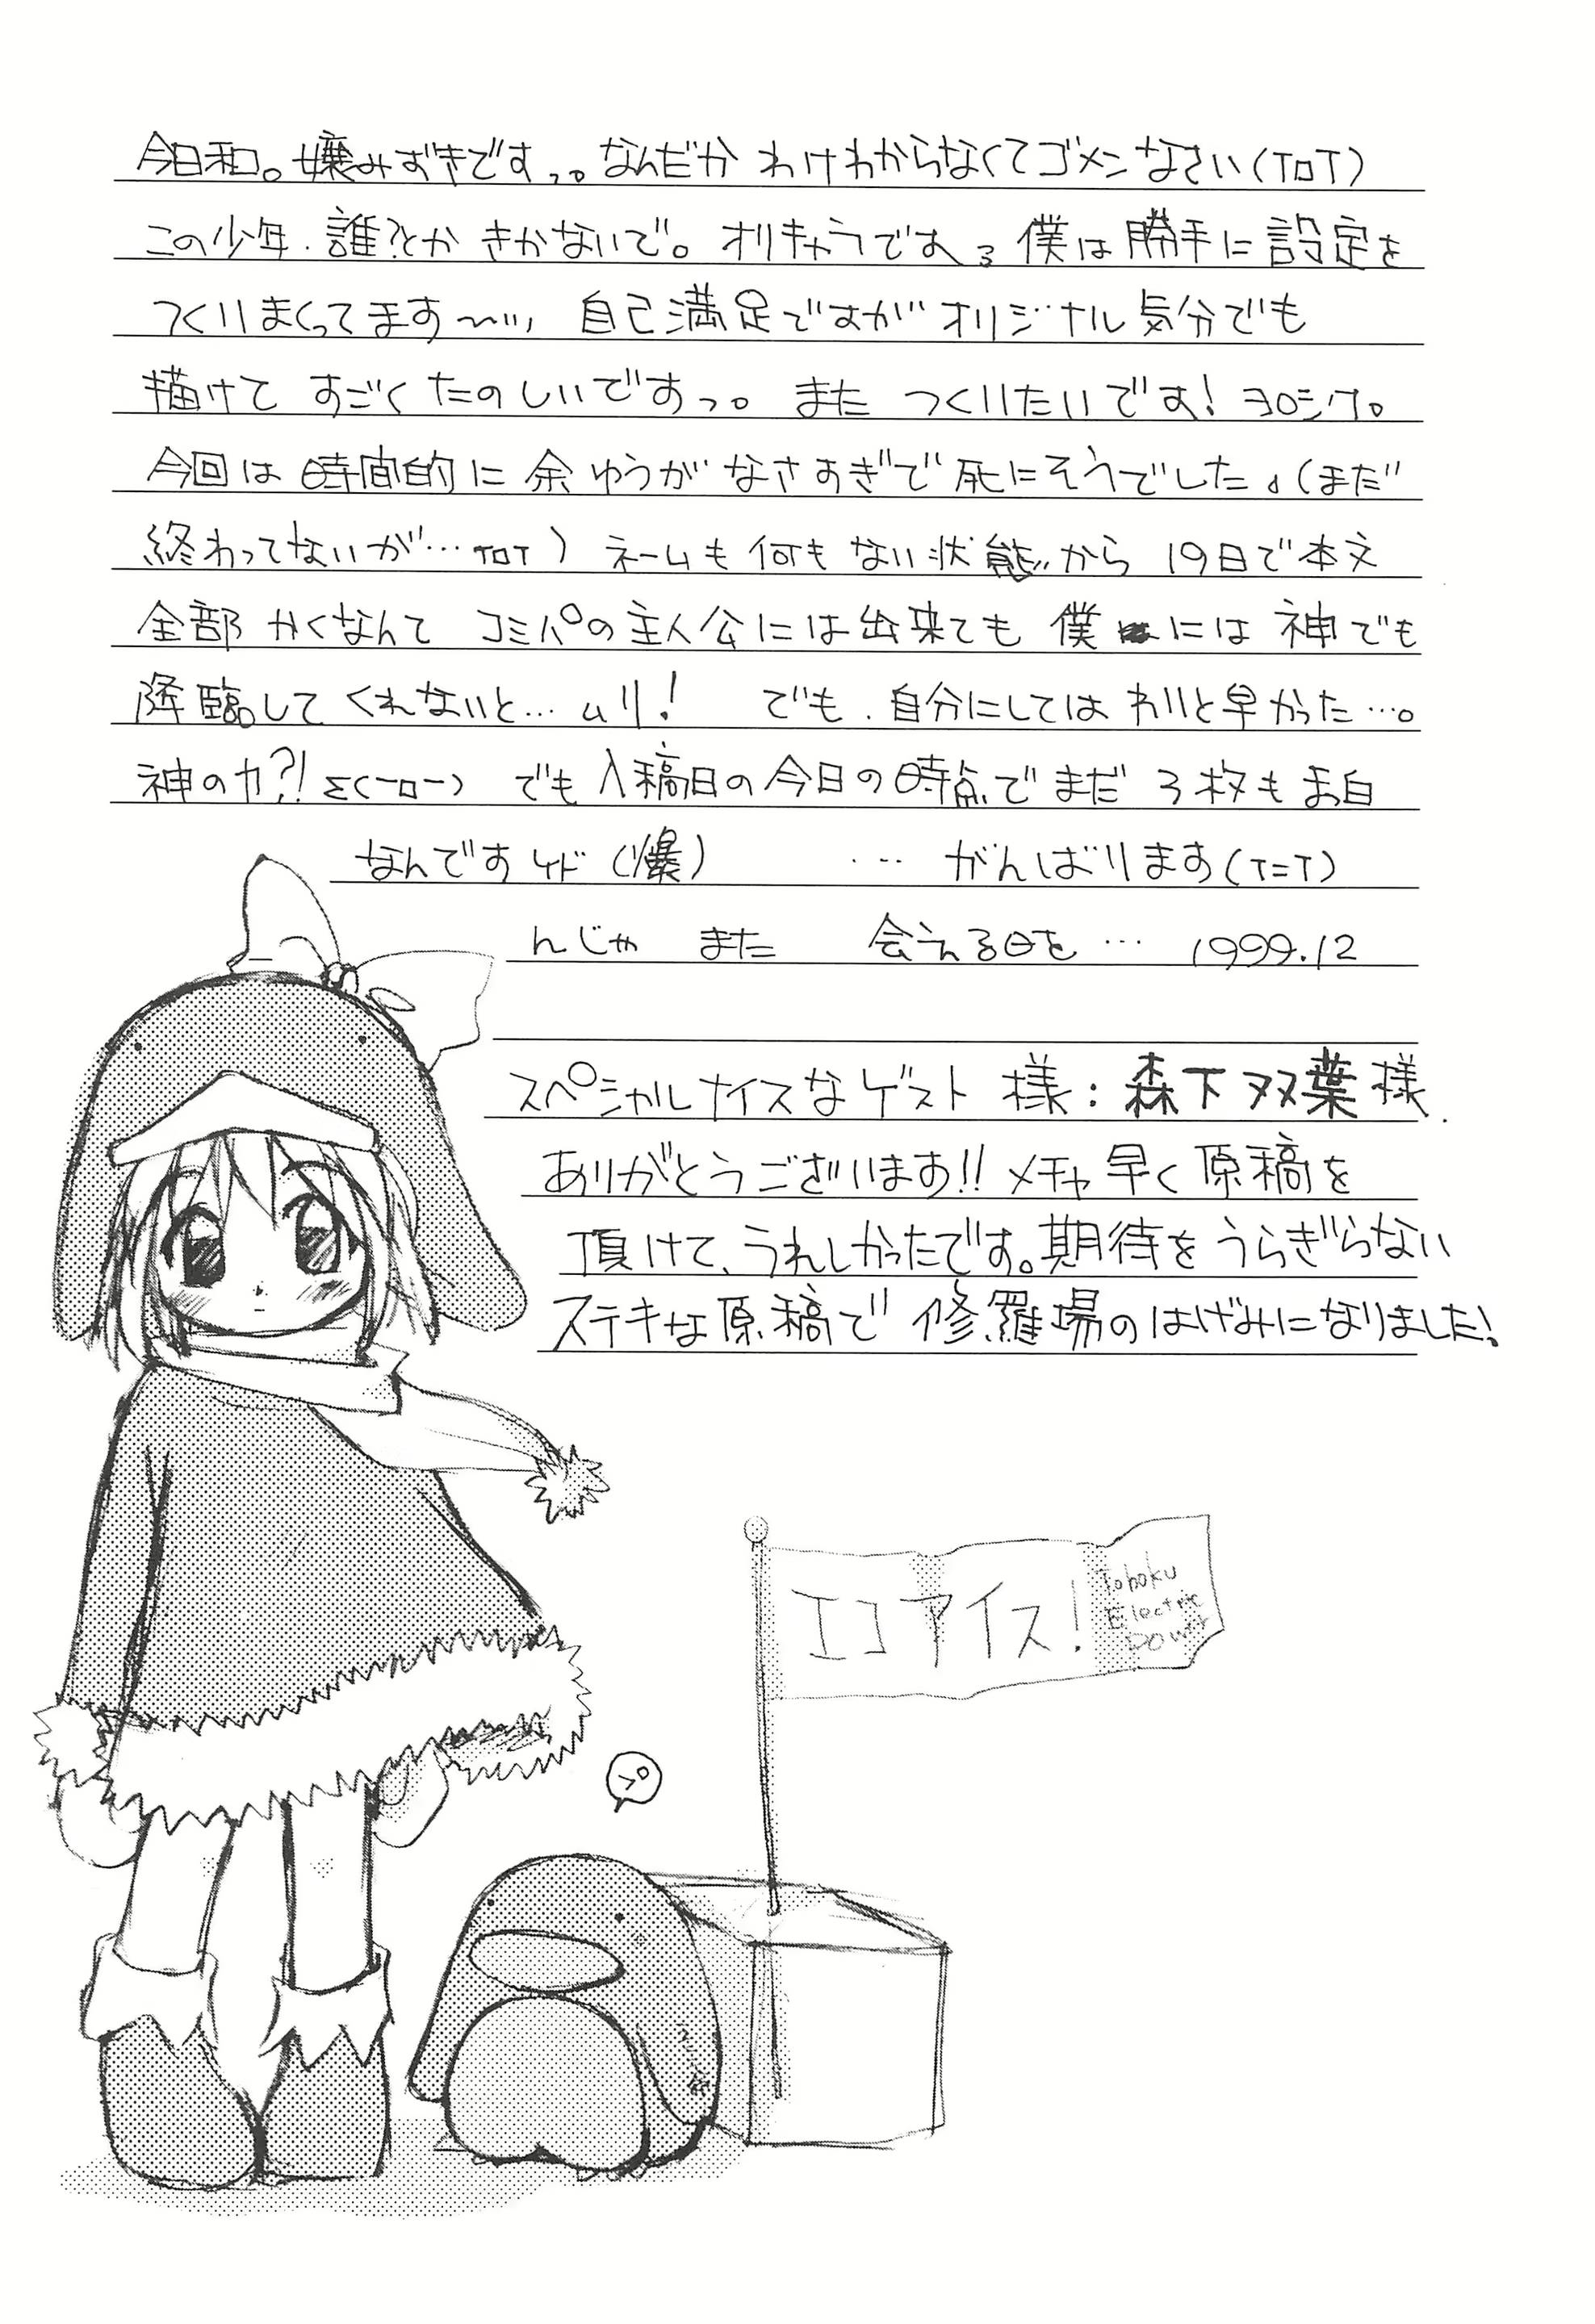 今日和。嬢みずきですっ。なんだか わけわからなくてゴメンなさい(ToT)
この少年.誰?とか きかないで。オリキャラですよ 僕は勝手に設定を
つくりまくってます〜… 自己満足ですがオリジナル気分でも
描けて すごく たのしいですっ。また つくりたいです! ヨロシク。
今回は 時間的に 余ゆうが なさすぎで 死にそうでした。(まだ
終わってないが…ToT) ネームも 何も ない状態から 19日で本文
全部 かくなんて コミパの主人公には出来ても 僕には 神でも
降臨して くれないと…ムリ! でも.自分にしては わりと早かった…。
神の力?! Σ(ーロー) でも 入稿日の今日の時点で まだ 3枚も ま白
なんですケド(爆) … がんばります(T=T)
んじゃ また 会える日を… 1999.12
スペシャルナイスなゲスト 様:森下双葉様.
ありがとうございます!! メチャ早く原稿を
頂けて、うれしかったです。期待をうらぎらない
ステキな原稿で 修羅場のはげみになりました!
エコアイス!
Tohoku
Electric
Power